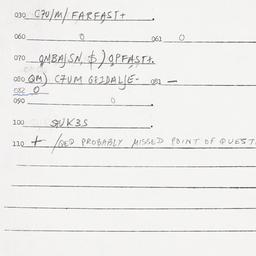 030 C7U/M/FARFAST+
060 0 061 0
070 QMBA/SN, $) QPFAST+
080 QM) C7UM 081 —
082 0
090 0
100 SUK3S
110 + /QED PROBABLY MISSED POINT OF QUEST